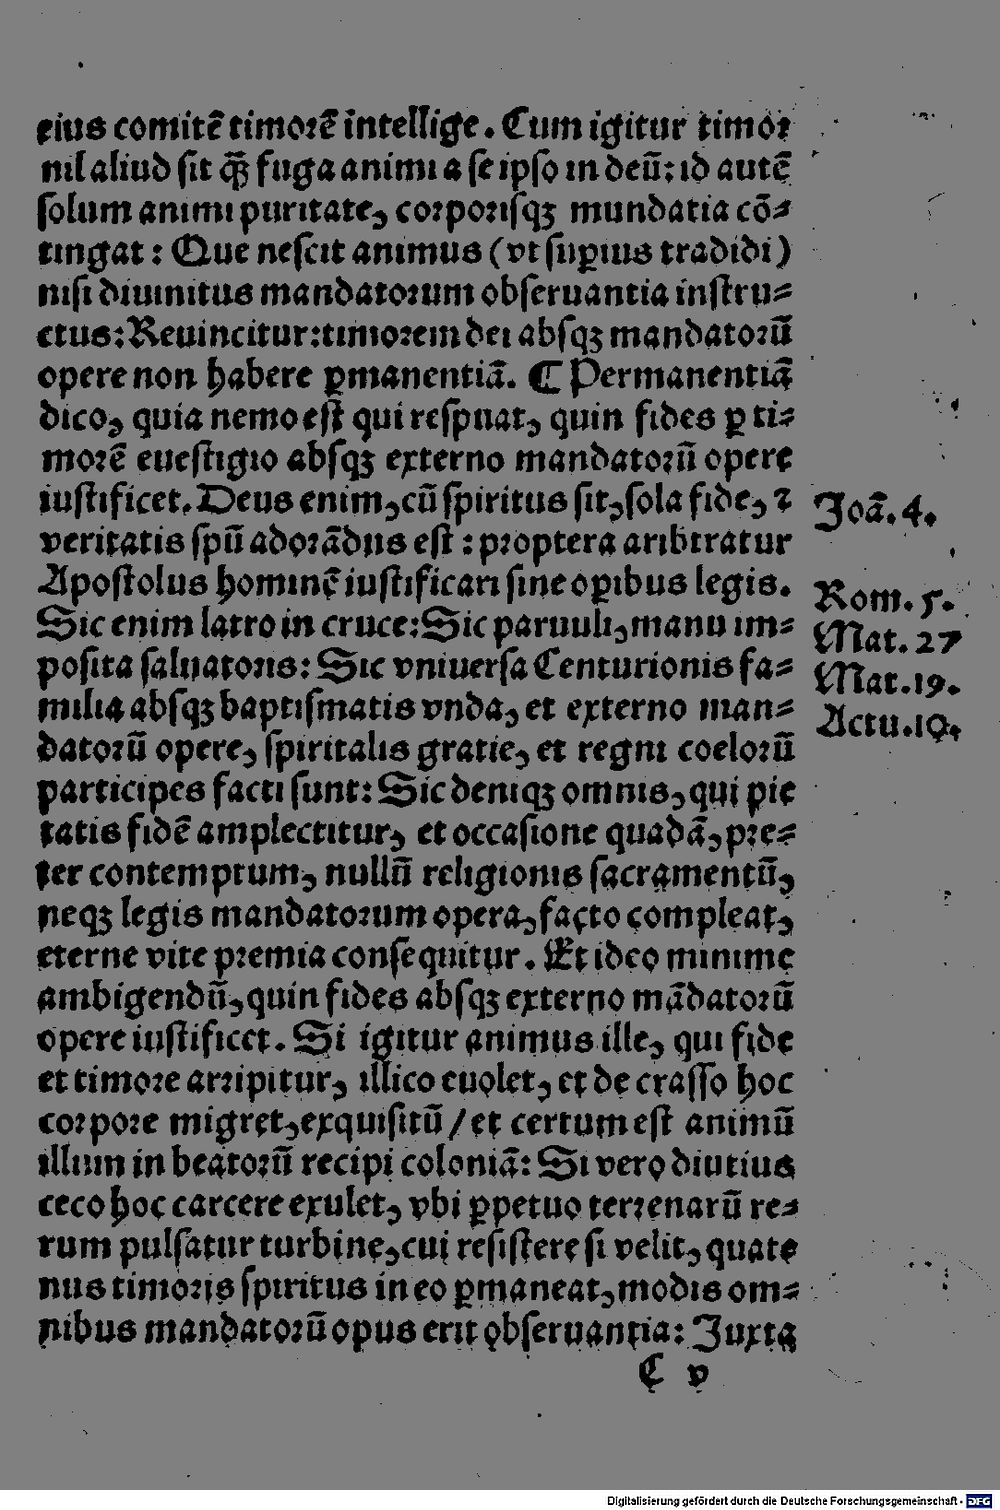 eius comitē timorē intellige. Cum igitur timor
nil aliud sit q̄ȝ fuga animi a se ipso in deū: id autē
solum animi puritate, corporisqȝ mundatia cō⸗
tingat: Que nescit animus (vt suꝑius tradidi)
nisi diuinitus mandatorum obseruantia instru⸗
ctus: Reuincitur: timorem dei absqȝ mandatorū
opere non habere ꝑmanentiā. ¶ Permanentiā
dico, quia nemo est qui respuat, quin fides ꝑ ti⸗
morē euestigio absqȝ externo mandatorū opere
iustificet. Deus enim, cū spiritus sit, sola fide, ⁊
veritatis spū adorādus est: proptera aribtratur
Apostolus hominē iustificari sine oꝑibus legis.
Sic enim latro in cruce: Sic paruuli, manu im⸗
posita saluatoris: Sic vniuersa Centurionis fa⸗
milia absqȝ baptismatis vnda, et externo man⸗
datorū opere, spiritalis gratie, et regni coelorū
participes facti sunt: Sic deniqȝ omnis, qui pie
tatis fidē amplectitur, et occasione quadā, pre⸗
ter contemptum, nullū religionis sacramentū,
neqȝ legis mandatorum opera, facto compleat,
eterne vite premia consequitur. Et ideo minime
ambigendū, quin fides absqȝ externo mādatorū
opere iustificet. Si igitur animus ille, qui fide
et timore arripitur, illico euolet, et de crasso hoc
corpore migret, exquisitū / et certum est animū
illum in beatorū recipi coloniā: Si vero diutius
ceco hoc carcere exulet, vbi ꝑpetuo terrenarū re⸗
rum pulsatur turbine, cui resistere si velit, quate
nus timoris spiritus in eo ꝑmaneat, modis om⸗
nibus mandatorū opus erit obseruantia: Juxta
C v
Joā. 4.
Rom. 5.
Mat. 27
Mat. 19.
Actu. 10.
Digitalisierung gefördert durch die Deutsche Forschungsgemeinschaft - DFG